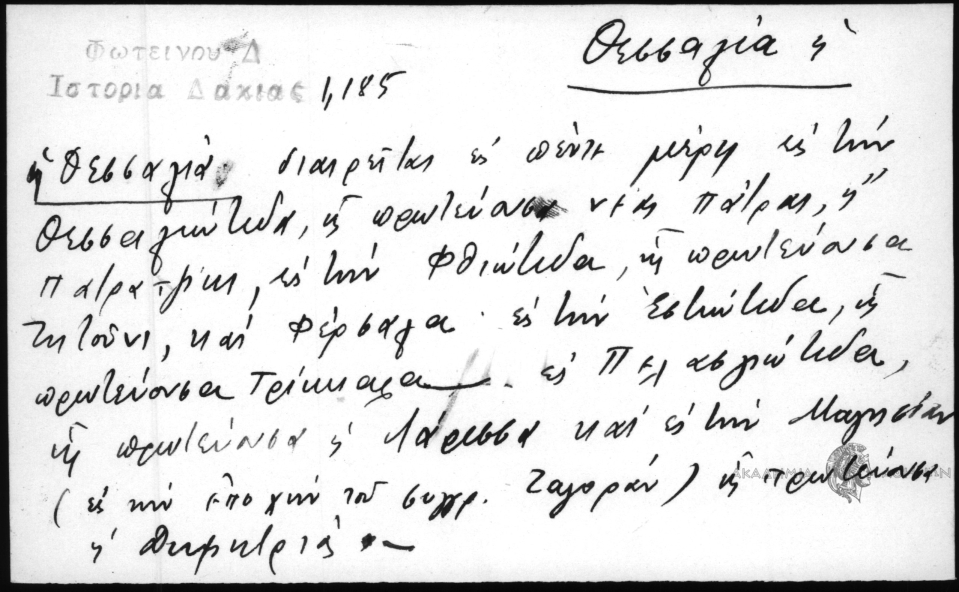 Φωτεινού Δ
Ιστορία Δακίας 1,185
Θεσσαλία ἡ
ἡ Θεσσαλία διαιρεῖται εἰς πέντε μέρη εἰς τὴν
Θεσσαλιώτιδα, ἧς πρωτεύουσα νέας Πάτρας, ἢ
Πατρατζίκι, εἰς τὴν Φθιώτιδα, ἧς πρωτεύουσα
Ζητοῦνι, καὶ Φέρσαλα· εἰς τὴν Ἑστιώτιδα, ἧς
πρωτεύουσα Τρίκκαλα εἰς Πελασγιώτιδα,
ἧς πρωτεύουσα ἡ Λάρισσα καὶ εἰς τὴν Μαγνησίαν
(εἰς τὴν ἐποχὴν τοῦ συγγρ. Ζαγοράν) ἧς πρωτεύουσα
ἡ Δημητριάς
ΑΚΑΔΗΜΙΑ